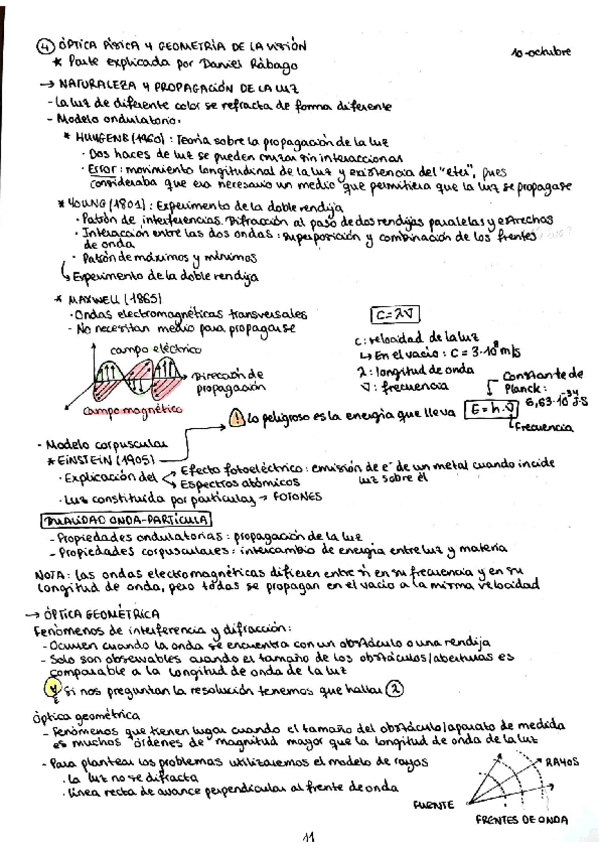 ④ ÓPTICA FÍSICA Y GEOMETRÍA DE LA VISIÓN
10-octubre
* Parte explicada por Daniel Rábago
→ NATURALEZA Y PROPAGACIÓN DE LA LUZ
- La luz de diferente color se refracta de forma diferente
- Modelo ondulatorio:
* HUYGENS (1960): Teoría sobre la propagación de la luz
· Dos haces de luz se pueden cruzar sin interaccionas
· Error: movimiento longitudinal de la luz y existencia del "eter", pues
consideraba que era necesario un medio que permitiera que la luz se propagase
* YOUNG (1801): Experimento de la doble rendija
· Patrón de interferencias. Difracción al paso de dos rendijas paralelas y estrechos
· Interacción entre las dos ondas: superposición y combinación de los frentes
de onda
· Patrón de máximos y mínimos
↳ Experimento de la doble rendija
* MAXWELL (1865)
· Ondas electromagnéticas transversales
· No necesitan medio para propagarse
campo eléctrico
Dirección de
propagación
campo magnético
C = λ·ν
c: velocidad de la luz
↳ En el vacío: C = 3·10⁸ m/s
λ: longitud de onda
ν: frecuencia
Constante de
Planck:
6,63·10⁻³⁴ J·S
⚠ Lo peligroso es la energía que lleva E = h·ν
↳ Frecuencia
- Modelo corpuscular
* EINSTEIN (1905)
· Explicación del
Efecto fotoeléctrico: emisión de e⁻ de un metal cuando incide
luz sobre él
Espectros atómicos
· Luz constituida por partículas → FOTONES
DUALIDAD ONDA-PARTÍCULA
- Propiedades ondulatorias: propagación de la luz
- Propiedades corpusculares: intercambio de energía entre luz y materia
NOTA: las ondas electromagnéticas difieren entre sí en su frecuencia y en su
longitud de onda, pero todas se propagan en el vacío a la misma velocidad
→ ÓPTICA GEOMÉTRICA
Fenómenos de interferencia y difracción:
- Ocurren cuando la onda se encuentra con un obstáculo o una rendija
- Solo son observables cuando el tamaño de los obstáculos/aberturas es
comparable a la longitud de onda de la luz
Si nos preguntan la resolución tenemos que hallar ②
Óptica geométrica
- Fenómenos que tienen lugar cuando el tamaño del obstáculo/aparato de medida
es muchos "órdenes de" magnitud mayor que la longitud de onda de la luz
- Para plantear los problemas utilizaremos el modelo de rayos
· La luz no se difracta
· Línea recta de avance perpendicular al frente de onda
RAYOS
FUENTE
FRENTES DE ONDA
11